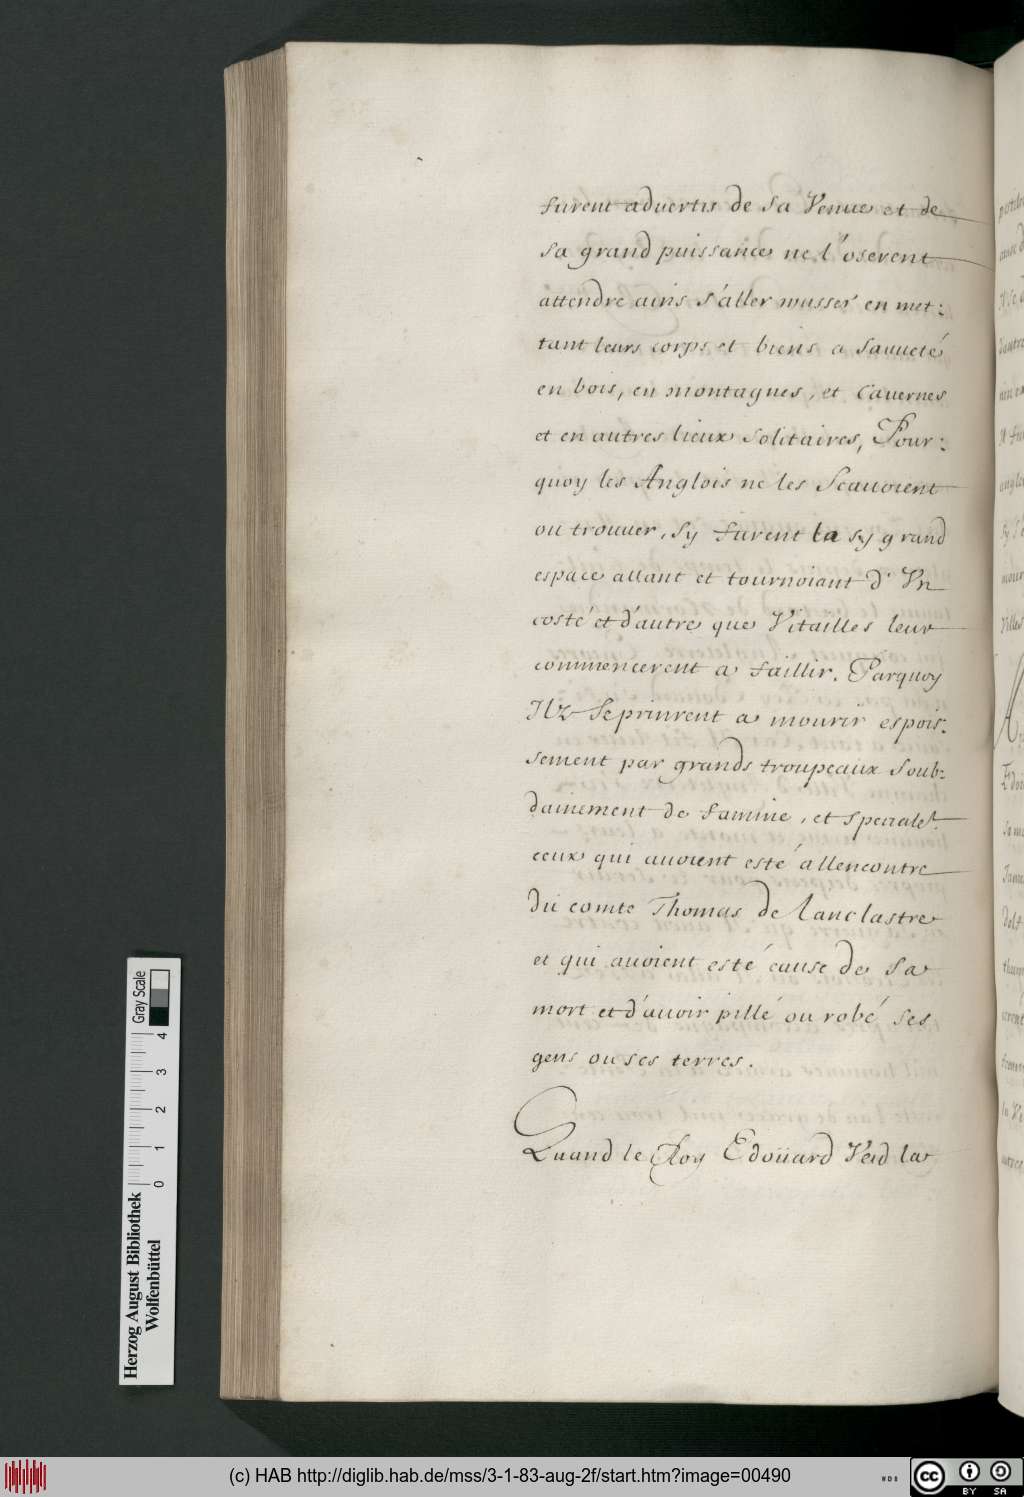 furent advertis de sa Venue et de
sa grand puissance ne l'oserent
attendre ains s'aller musser en met:
tant leurs corps et biens a sauueté
en bois, en montagnes, et Cauernes
et en autres lieux solitaires, Pour:
quoy les Anglois ne les Scauoient
ou trouuer, sy furent la sy grand
espace allant et tournoiant d'Vn
costé et d'autre que Vitailles leur
commencerent a faillir. Parquoy
Ilz se prinrent a mourir espois:
sement par grands troupeaux soub:
dainement de famine, et specialet
ceux qui auoient esté allencontre
du comte Thomas de lanclastre
et qui auoient esté cause de sa
mort et d'auoir pillé ou robé ses
gens ou ses terres.
Quand le Roy Edoüard Veid la
Herzog August Bibliothek
Wolfenbüttel
0 1 2 3 4
Gray Scale
(c) HAB http://diglib.hab.de/mss/3-1-83-aug-2f/start.htm?image=00490
WDB
cc BY SA